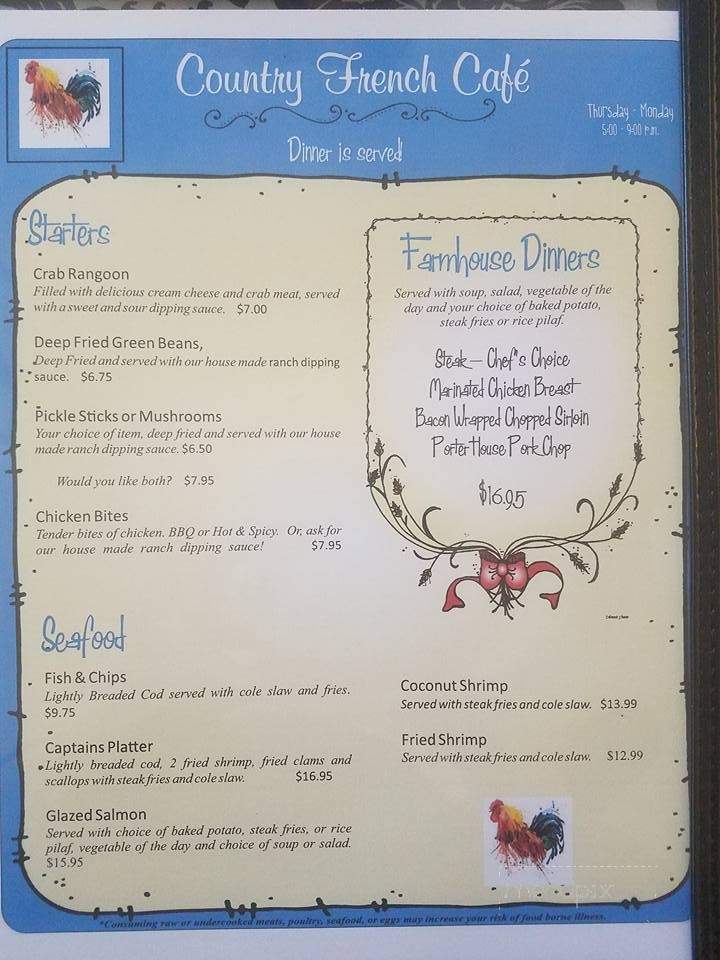 Country French Café
Thursday - Monday
5:00 - 9:00 p.m.
Dinner is served!
Starters
Crab Rangoon
Filled with delicious cream cheese and crab meat, served
with a sweet and sour dipping sauce. $7.00
Deep Fried Green Beans,
Deep Fried and served with our house made ranch dipping
sauce. $6.75
Pickle Sticks or Mushrooms
Your choice of item, deep fried and served with our house
made ranch dipping sauce. $6.50
Would you like both? $7.95
Chicken Bites
Tender bites of chicken. BBQ or Hot & Spicy. Or, ask for
our house made ranch dipping sauce! $7.95
Farmhouse Dinners
Served with soup, salad, vegetable of the
day and your choice of baked potato,
steak fries or rice pilaf.
Steak — Chef"s Choice
Marinated Chicken Breast
Bacon Wrapped Chopped Sirloin
Porter House Pork Chop
$16.95
Seafood
Fish & Chips
Lightly Breaded Cod served with cole slaw and fries.
$9.75
Captains Platter
Lightly breaded cod, 2 fried shrimp, fried clams and
scallops with steak fries and cole slaw. $16.95
Glazed Salmon
Served with choice of baked potato, steak fries, or rice
pilaf, vegetable of the day and choice of soup or salad.
$15.95
Coconut Shrimp
Served with steak fries and cole slaw. $13.99
Fried Shrimp
Served with steak fries and cole slaw. $12.99
*Consuming raw or undercooked meats, poultry, seafood, or eggs may increase your risk of food borne illness.